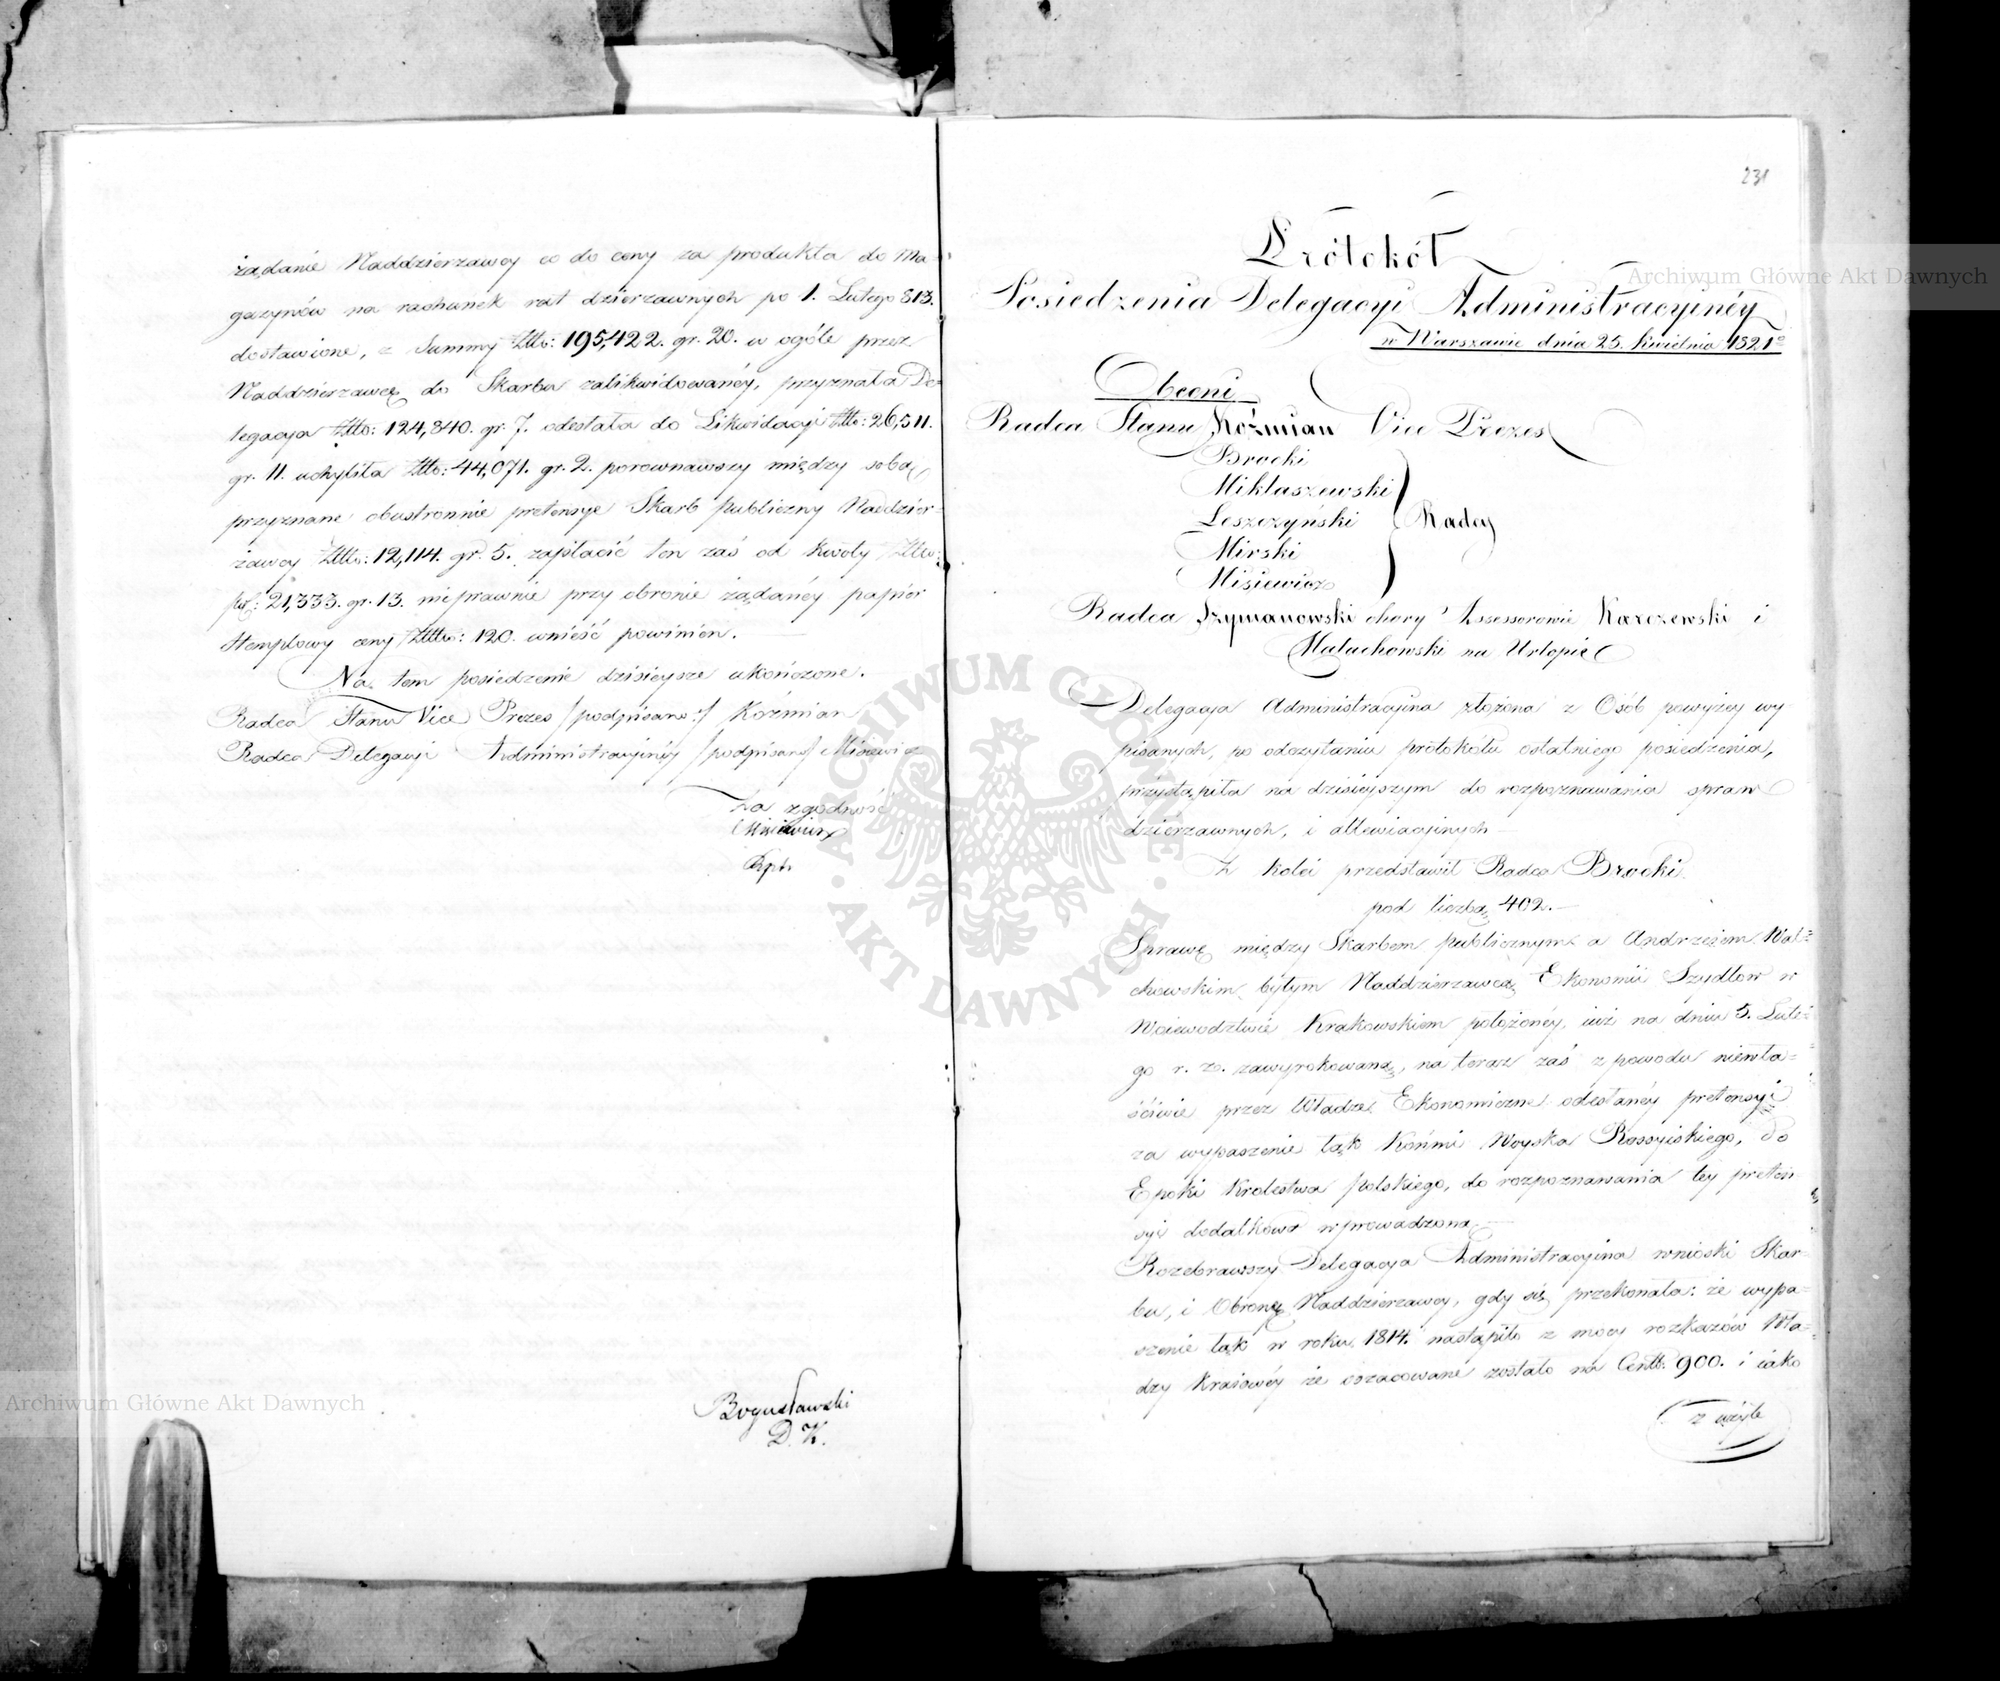 żądanie Naddzierzawcy co do ceny za produkta do Ma-
gazynów na rachunek rat dzierzawnych po 1. Lutego 813.
dostawione, z Summy Złlb: 195,422. gr. 20. w ogóle przez
Naddzierzawcę do Skarbu zalikwidowanéy, przyznała De-
legacya Złlb: 124,840. gr. 7. odesłała do Likwidacyi Złlb: 26,511.
gr. 11. uchyliła Złlb: 44,071. gr. 2. porownawszy między sobą
przyznane obustronnie pretensye Skarb publiczny Naddzier-
żawcy Złlb: 12,114. gr. 5. zapłacić ten zaś od kwoty Złlb:
pol: 21,333. gr. 13. nieprawnie przy obronie żądanéy papier
stemplowy ceny Złlb: 120. wnieść powinien.
Na tem posiedzenie dzisieysze ukończone.
Radca Stanu Vice Prezes /podpisano:/ Koźmian
Radca Delegacyi Administracyinéy /podpisano/ Misiewicz
Za zgodność
Misiewicz
Bogusławski
D. K.
231
Prótokół
Posiedzenia Delegacyi Administracyinéy
w Warszawie dnia 25. Kwietnia 1821º
Obecni
Radca Stanu Koźmian Vice Prezes
Brocki
Miklaszewski
Leszczyński Radcy
Mirski
Misiewicz
Radca Szymanowski chory Assessorowie Karczewski i
Małachowski na Urlopie
Delegacya Administracyina złożona z Osób powyżey wy-
pisanych, po odczytaniu prótokółu ostatniego posiedzenia,
przystąpiła na dzisieyszym do rozpoznawania spraw
dzierzawnych, i allewiacyinych
Z kolei przedstawił Radca Brocki
pod liczbą 402.
Sprawę między Skarbem publicznym a Andrzeiem Wal-
chowskim byłym Naddzierzawcą Ekonomii Szydłow w
Woiewodztwie Krakowskiem położonéy, iuż na dniu 5. Lute-
go r. b. zawyrokowaną, na teraz zaś z powodu niewła-
ściwie przez Władze Ekonomiczne odesłanéy pretensyi
za wypaszenie łąk Końmi Woyska Rossyiskiego, do
Epoki Krolestwa Polskiego, do rozpoznawania tey preten-
syi dodatkowo wprowadzoną.
Rozebrawszy Delegacya Administracyina wnioski Skar-
bu, i Obronę Naddzierzawcy, gdy się przekonała: że wypa-
szenie łąk w roku 1814. nastąpiło z mocy rozkazów Wła-
dzy Kraiowéy że oszacowane zostało na Centn. 900. i iako
z użyte
Archiwum Główne Akt Dawnych
Archiwum Główne Akt Dawnych
ARCHIWUM GŁÓWNE · AKT DAWNYCH ·